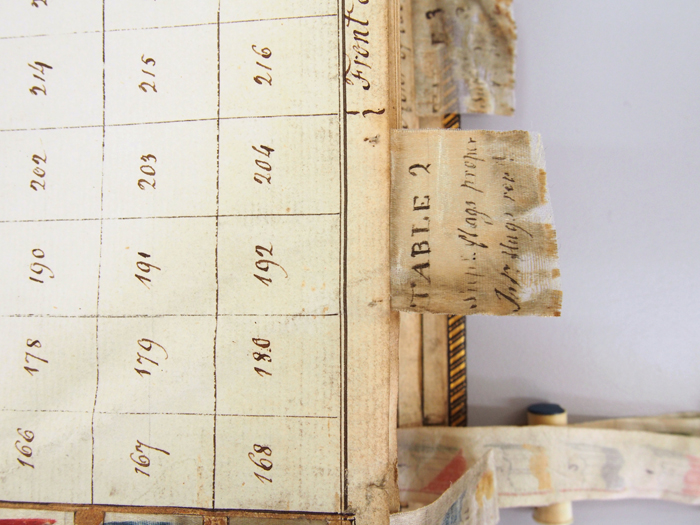 214 215 216
202 203 204
190 191 192
178 179 180
166 167 168
Front
TABLE 2
flags proper
flags